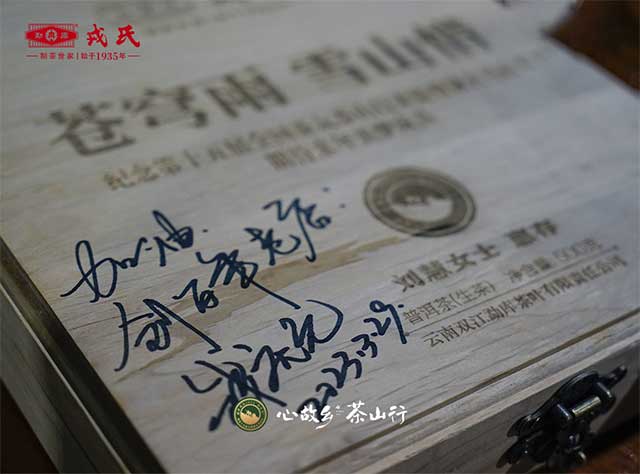 勐库 戎氏
制茶世家 | 始于1935年
苍穹雨 雪山情
纪念第十五届
刘慧女士 惠存
普洱茶(生茶) 净含量
云南双江勐库茶叶有限责任公司
加油.
创百年老店.
2023.3.29.
心故乡 茶山行